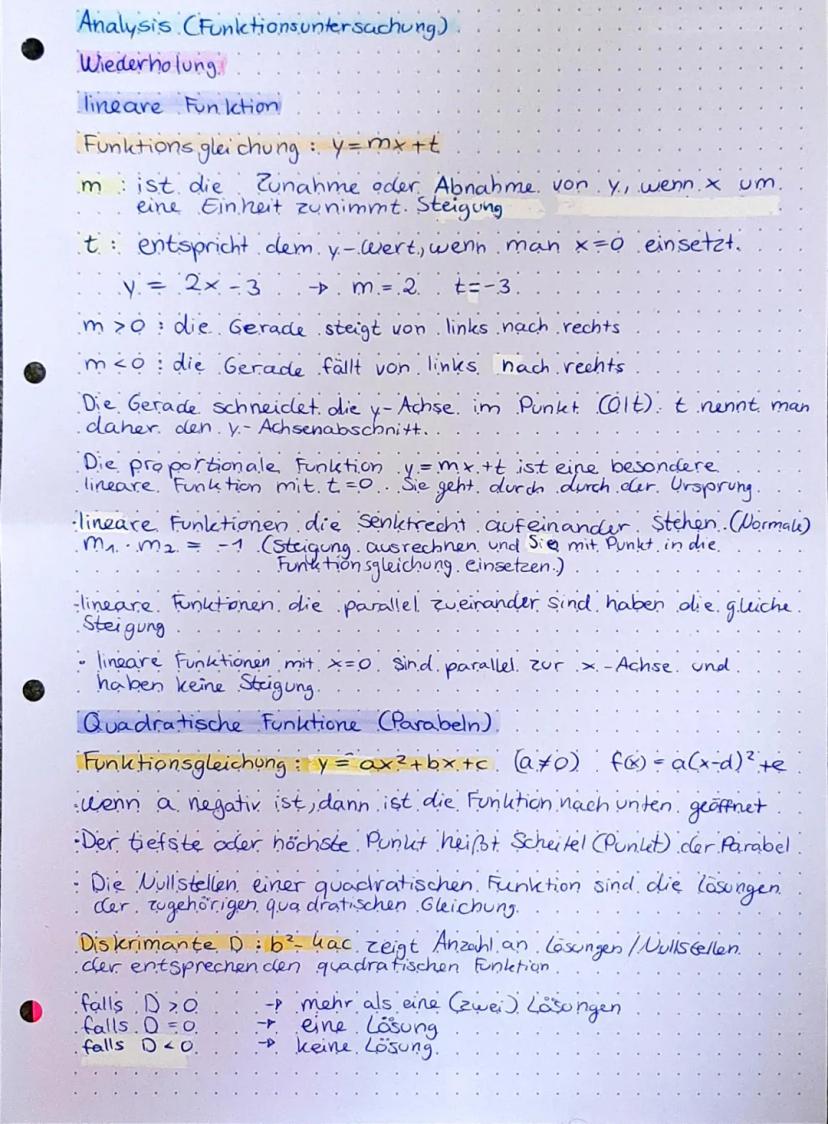 Analysis (Funktionsuntersuchung)
Wiederholung
lineare Funktion
Funktionsgleichung: y=mx+t
m : ist die Zunahme oder Abnahme von y, wenn x um
eine Einheit zunimmt. Steigung
t : entspricht dem y-Wert, wenn man x=0 einsetzt.
y = 2x-3 → m=2 t=-3
m>0 : die Gerade steigt von links nach rechts
m<0 : die Gerade fällt von links nach rechts
Die Gerade schneidet die y-Achse im Punkt (0|t). t nennt man
daher den y-Achsenabschnitt.
Die proportionale Funktion y=mx+t ist eine besondere
lineare Funktion mit t=0. Sie geht durch durch der Ursprung.
·lineare Funktionen die senktrecht aufeinander Stehen (Normale)
m₁·m₂ = -1 (Steigung ausrechnen und Sie mit Punkt in die
Funktionsgleichung einsetzen.)
-lineare Funktonen die parallel zueinander sind haben die gleiche
Steigung
· lineare Funktionen mit x=0 sind parallel zur x-Achse und
haben keine Steigung.
Quadratische Funktione (Parabeln)
Funktionsgleichung: y=ax²+bx+c (a≠0) f(x)=a(x-d)²+e
·wenn a negativ ist, dann ist die Funktion nach unten geöffnet
·Der tiefste oder höchste Punkt heißt Scheitel (Punkt) der Parabel
· Die Nullstellen einer quadratischen Funktion sind die Lösungen
der zugehörigen quadratischen Gleichung.
Diskrimante D : b²-4ac zeigt Anzahl an Lösungen/Nullstellen
der entsprechenden quadratischen Funktion
falls D>0 → mehr als eine (zwei) Lösungen
falls D=0 → eine Lösung
falls D<0 → keine Lösung.